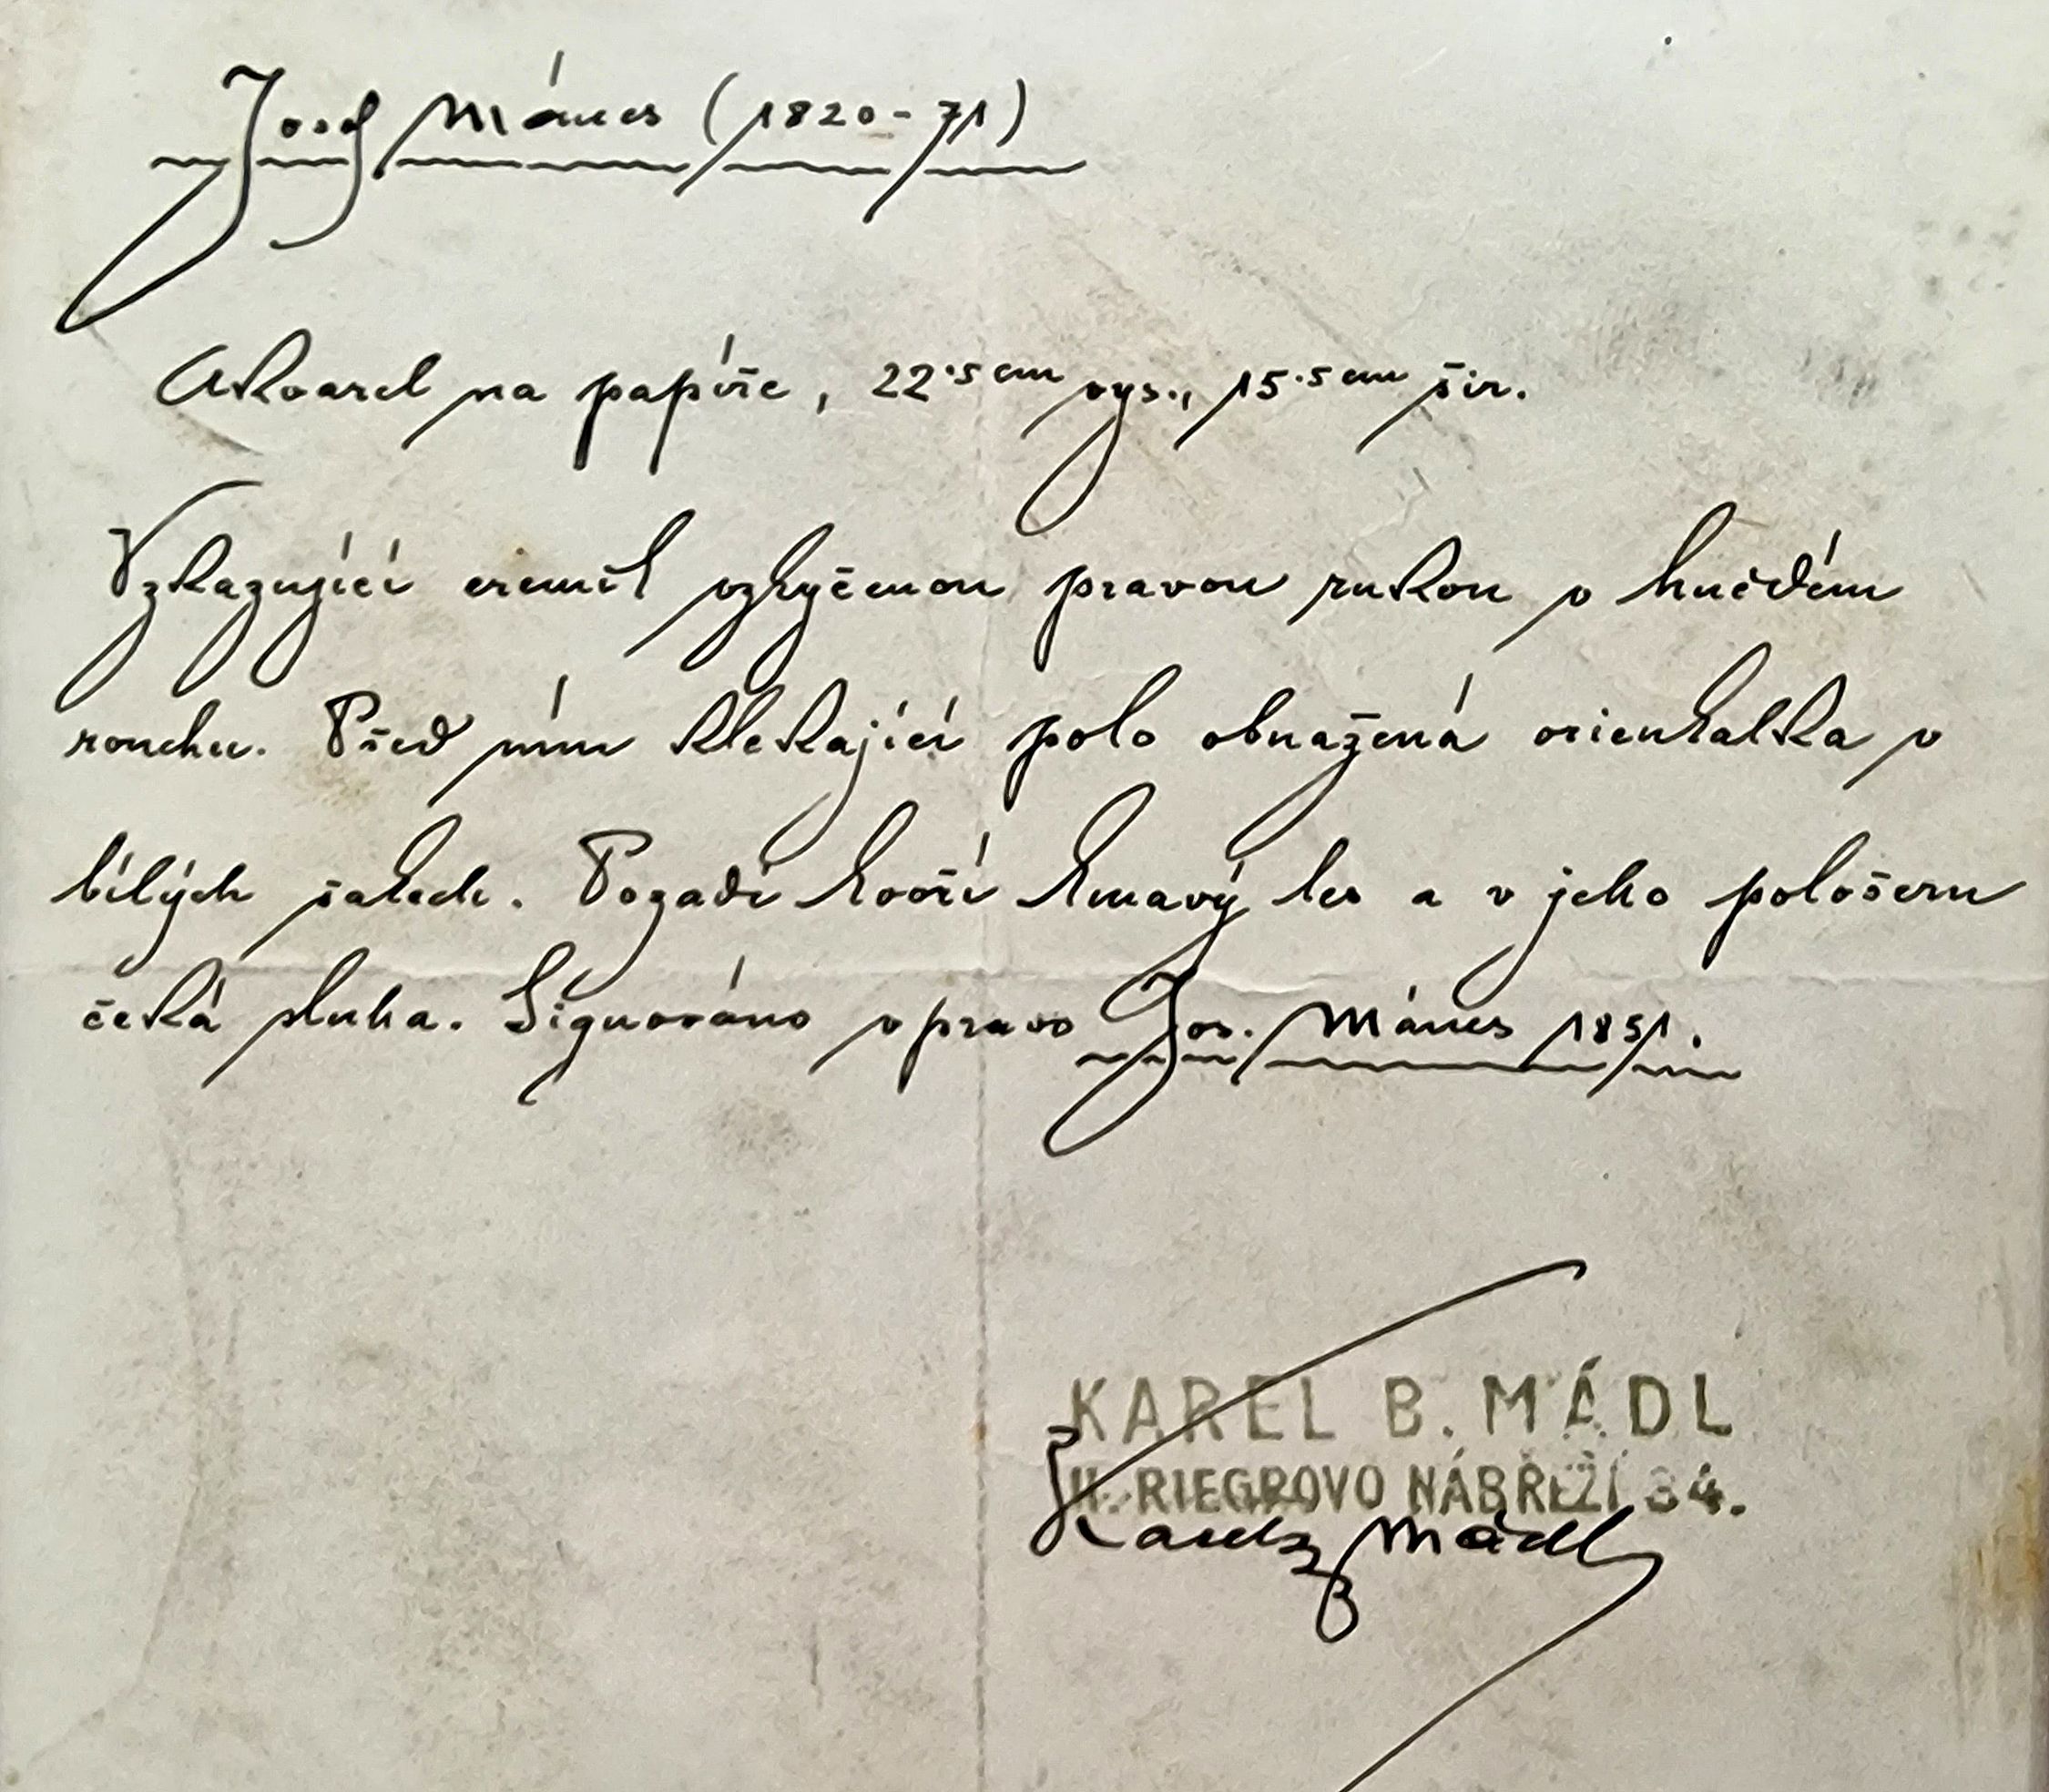 Josef Mánes (1820-71)
Akvarel na papíře, 22·5 cm vys., 15·5 cm šir.
Vzkazující eremit vztyčenou pravou rukou v hnědém
rouchu. Před ním klekající polo obnažená orientalka v
bílých šatech. Pozadí tvoří tmavý les a v jeho pološeru
čeká sluha. Signováno vpravo Jos. Mánes 1851.
KAREL B. MÁDL
II. RIEGROVO NÁBŘEŽÍ 34.
Karel B Mádl